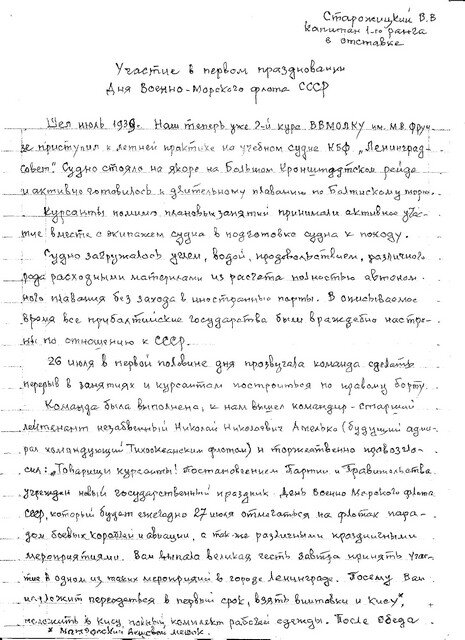 Старожицкий В.В
капитан 1-го ранга
в отставке
Участие в первом праздновании
Дня Военно-Морского флота СССР
Шел июль 1939г. Наш теперь уже 2-й курс ВВМОЛКУ им. М.В. Фрун-
зе приступил к летней практике на учебном судне КБФ „Ленинград-
совет". Судно стояло на якоре на Большом Кронштадтском рейде
и активно готовилось к длительному плаванию по Балтийскому морю.
Курсанты помимо плановых занятий принимали активное учас-
тие вместе с экипажем судна в подготовке судна к походу.
Судно загружалось углем, водой, продовольствием, различного
рода расходными материалами из расчета полностью автоном-
ного плавания без захода в иностранные порты. В описываемое
время все прибалтийские государства были враждебно настрое-
ны по отношению к СССР.
26 июля в первой половине дня прозвучала команда сделать
перерыв в занятиях и курсантам построиться по правому борту.
Команда была выполнена, к нам вышел командир - старший
лейтенант незабвенный Николай Николаевич Амелько (будущий адми-
рал командующий Тихоокеанским флотом) и торжественно провозгла-
сил: „Товарищи курсанты! Постановлением Партии и Правительства
учрежден новый государственный праздник День Военно Морского флота
СССР, который будет ежегодно 27 июля отмечаться на флотах пара-
дом боевых кораблей и авиации, а также различными праздничными
мероприятиями. Вам выпала великая честь завтра принять учас-
тие в одном из таких мероприятий в городе Ленинграде. Посему Вам
надлежит переодеться в первый срок, взять винтовки и кису*,
положить в кису полный комплект рабочей одежды. После обеда
* Матросский вещевой мешок.